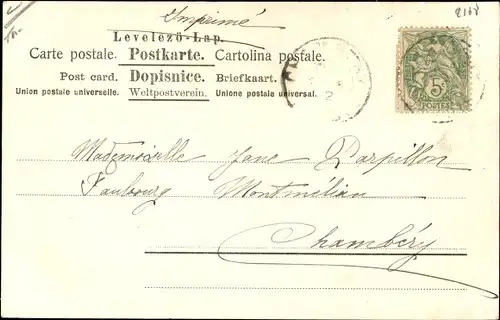 Imprimé
2168
Levelező-Lap.
Carte postale. Postkarte. Cartolina postale.
Post card. Dopisnice. Briefkaart.
Union postale universelle. Weltpostverein. Unione postale universal.
5c
POSTES
Mademoiselle Jane Parpillon
Faubourg Montmélian
Chambéry